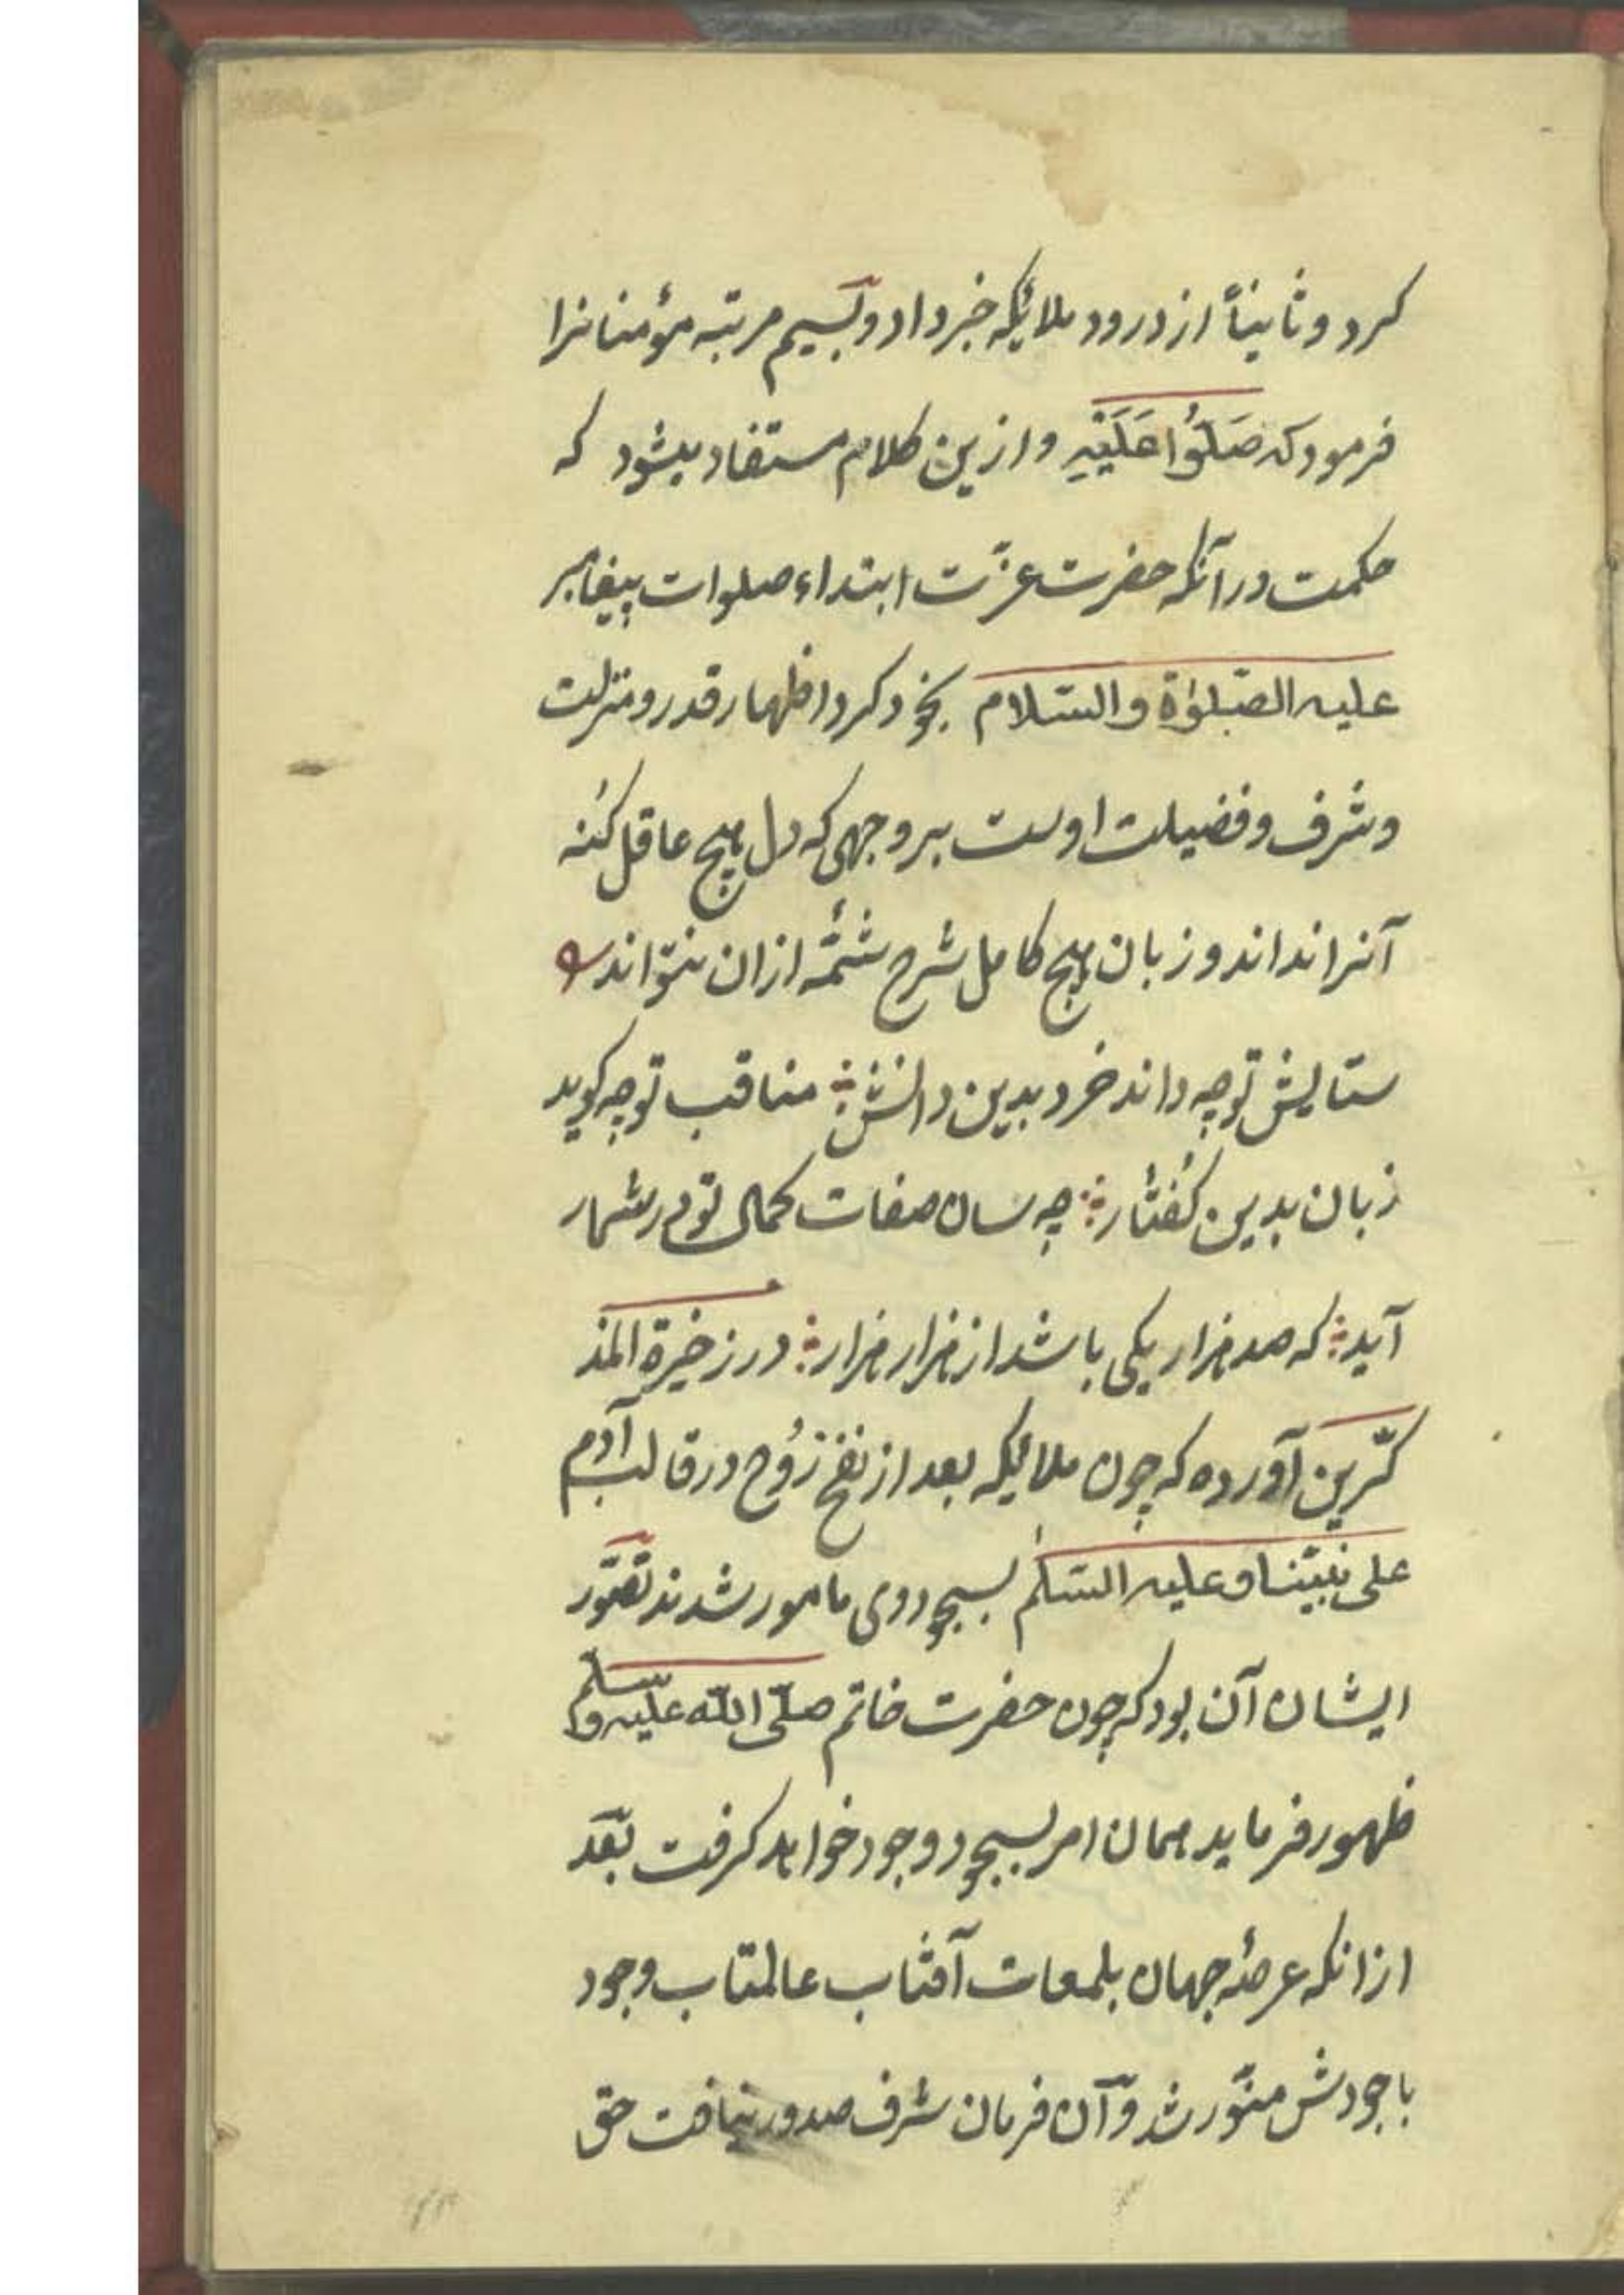 کرد و ثانیاً از درود ملائکه خبر داد و بسیم مرتبه مؤمنانرا
فرمود که صَلُّوا عَلَیْهِ و ازین کلام مستفاد میشود که
حکمت در آنکه حضرت عزّت ابتداء صلوات پیغامبر
علیه الصّلوٰة والسّلام بخود کرد اظهار قدر و منزلت
و شرف و فضیلت اوست بر وجهی که دل هیچ عاقل کُنه
آنرا نداند و زبان هیچ کامل شرح شمّهٔ ازان نتواند
ستایش تو چه داند خرد بدین دانش ؞ مناقب تو چه کوید
زبان بدین کُفتار ؞ چه سان صفات کمال تو در شمار
آید ؞ که صد هزار یکی باشد از هزار هزار ؞ در زخیرة المذ
کّرین آورده که چون ملائیکه بعد از نفخ رُوح در قالب آدم
علی نبیّنا و علیه السّلم بسجود وی مامور شدند تصّور
ایشان آن بود که چون حضرت خاتم صلّی الله علیه وسلّم
ظهور فرماید همان امر بسجود وجود خواهد کرفت بعد
ازانکه عرصهٔ جهان بلمعات آفتاب عالمتاب وجود
باجودش منوّر شد و آن فرمان شرف صدور نیافت حق